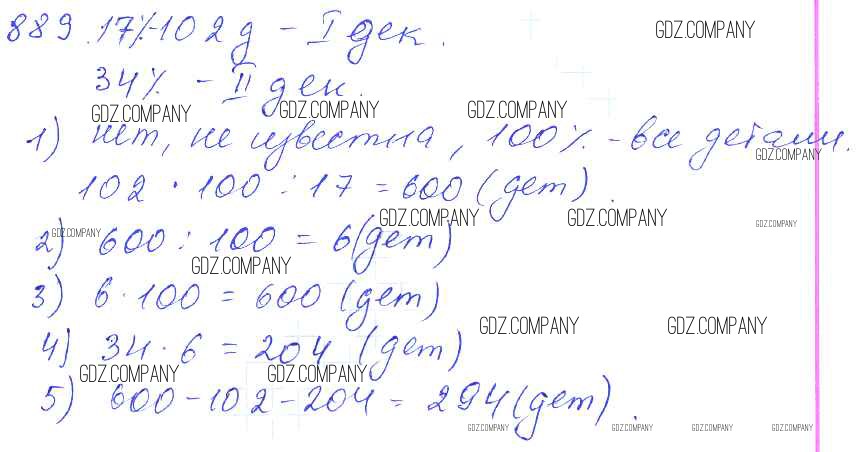 889. 17%-102д - I дек.
GDZ.COMPANY
34% - II дек.
GDZ.COMPANY GDZ.COMPANY GDZ.COMPANY
1) нет, не известна, 100% - все детали.
GDZ.COMPANY
102 · 100 : 17 = 600 (дет).
GDZ.COMPANY GDZ.COMPANY GDZ.COMPANY
GDZ.COMPANY
2) 600 : 100 = 6 (дет)
GDZ.COMPANY
3) 6 · 100 = 600 (дет)
GDZ.COMPANY GDZ.COMPANY
4) 34 · 6 = 204 (дет)
GDZ.COMPANY GDZ.COMPANY
5) 600 - 102 - 204 = 294 (дет).
GDZ.COMPANY GDZ.COMPANY GDZ.COMPANY GDZ.COMPANY